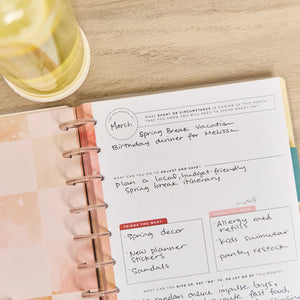 March
WHAT EVENT OR CIRCUMSTANCE IS COMING UP THIS MONTH
THAT YOU KNOW YOU WILL NEED TO SPEND MONEY ON?
Spring Break Vacation
Birthday dinner for Melissa
WHAT CAN YOU DO TO ADJUST AND SAVE?
Plan a local, budget-friendly
Spring break itinerary
THINGS YOU WANT:
Spring decor
New planner
stickers
Sandals
THINGS YOU
Allergy med
refills
Kids swimwear
pantry restock
WHAT CAN YOU GIVE UP, SAY "NO" TO, OR LET GO OF THIS MONTH?
random online impulse buys,
fast food,